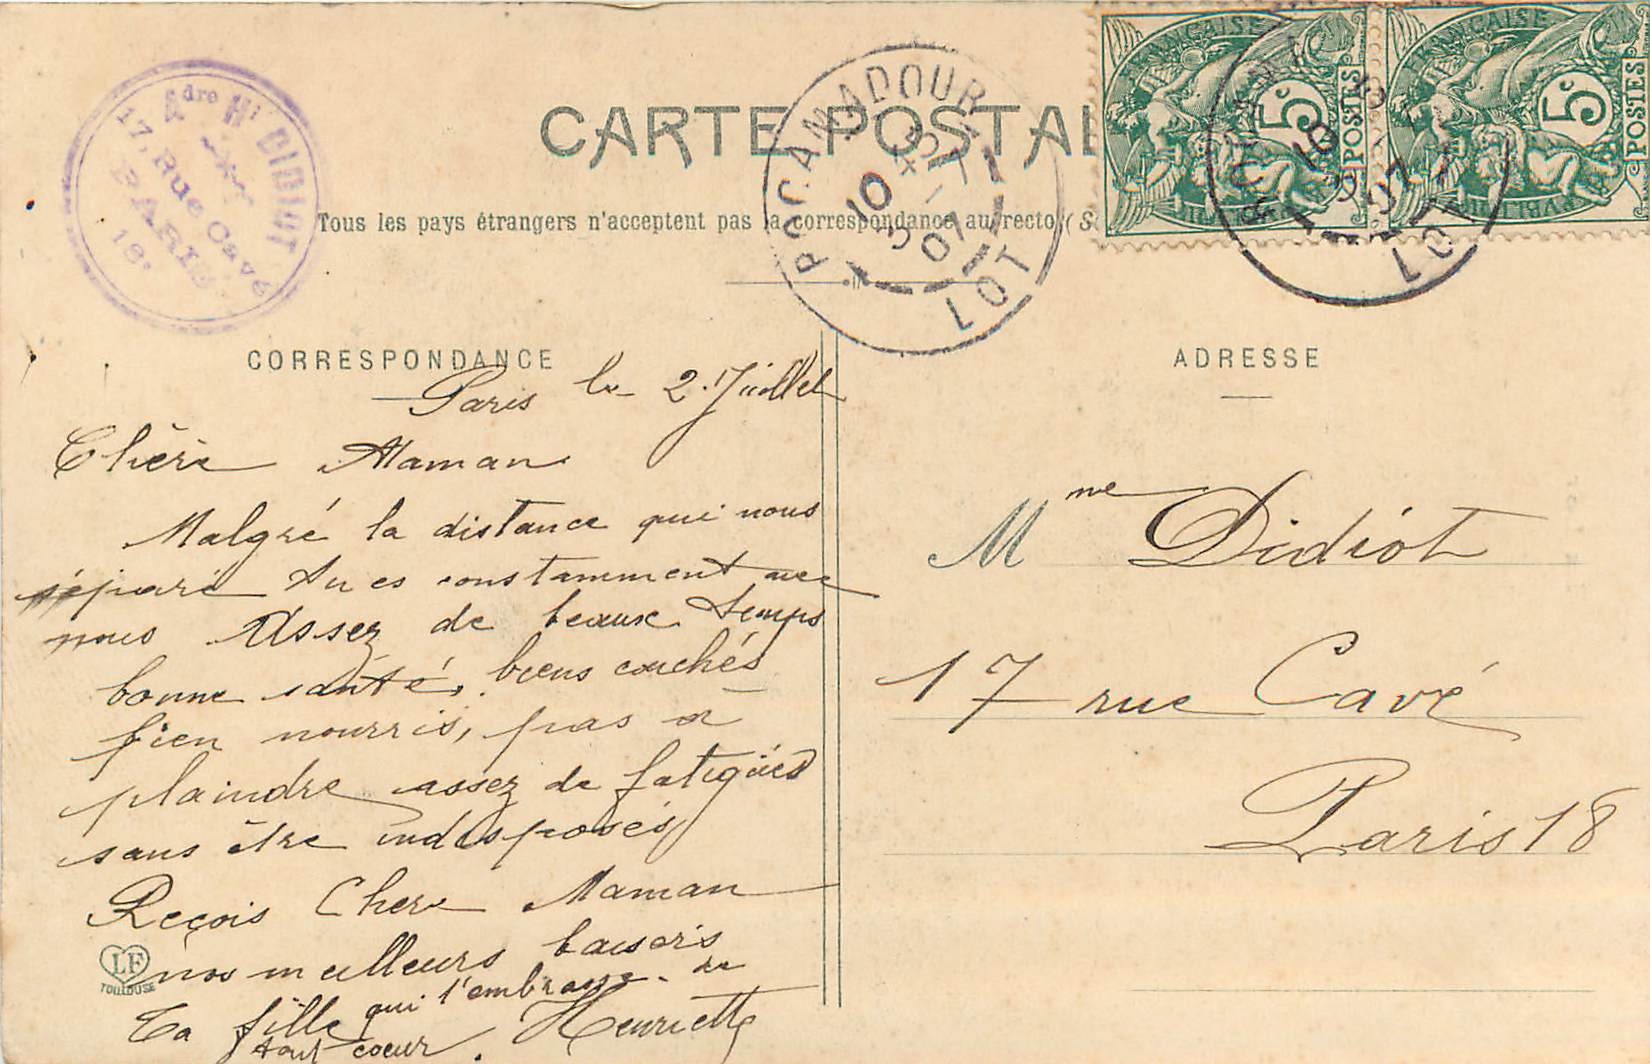 CARTE POSTAL
Tous les pays étrangers n'acceptent pas la correspondance au recto (S
A^dre H^i DIDIOT
17, Rue Cavé
PARIS
18^e
ROCAMADOUR
10
4-7
07
LOT
FRANÇAISE
5^c
POSTES
FRANÇAISE
5^c
POSTES
10
07
LOT
CORRESPONDANCE
Paris le 2 Juillet
Chère Maman
Malgré la distance qui nous
sépare tu es constamment avec
nous Assez de beaux temps
bonne santé, biens couchés
bien nourris, pas à
plaindre assez de fatiguées
sans être indisposés
Reçois Chere Maman
nos meilleurs baisers
Ta fille qui t'embrasse de
tout coeur. Henriette
LF
TOULOUSE
ADRESSE
M^me Didiot
17 rue Cavé
Paris 18